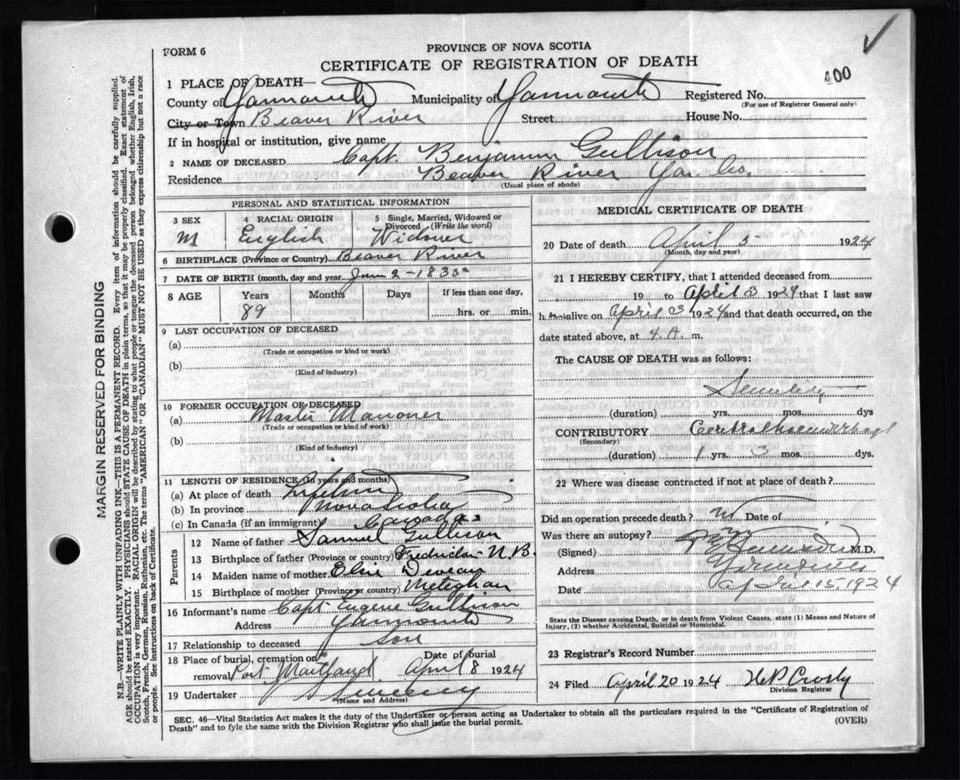 400
FORM 6
PROVINCE OF NOVA SCOTIA
CERTIFICATE OF REGISTRATION OF DEATH
1 PLACE OF DEATH—
County of Yarmouth Municipality of Yarmouth Registered No.
(For use of Registrar General only)
City or Town Beaver River Street House No.
If in hospital or institution, give name
2 NAME OF DECEASED Capt. Benjamin Gullison
Residence Beaver River Yar. Co.
(Usual place of abode)
PERSONAL AND STATISTICAL INFORMATION
3 SEX 4 RACIAL ORIGIN 5 Single, Married, Widowed or Divorced (Write the word)
M English Widower
6 BIRTHPLACE (Province or Country) Beaver River
7 DATE OF BIRTH (month, day and year) June 2 - 1835
8 AGE Years Months Days If less than one day,
89 hrs. or min.
9 LAST OCCUPATION OF DECEASED
(a)
(Trade or occupation or kind or work)
(b)
(Kind of industry)
10 FORMER OCCUPATION OF DECEASED
(a) Master Mariner
(Trade or occupation or kind of work)
(b)
(Kind of industry)
11 LENGTH OF RESIDENCE (In years and months)
(a) At place of death
(b) In province Nova Scotia
(c) In Canada (if an immigrant) Canada
Parents
12 Name of father Samuel Gullison
13 Birthplace of father (Province or country) Fredricton N.B.
14 Maiden name of mother Deveau
15 Birthplace of mother (Province or country) Meteghan
16 Informant's name Capt Eugene Gullison
Address Yarmouth
17 Relationship to deceased Son
18 Place of burial, cremation or removal Port Maitland Date of burial April 8 1924
19 Undertaker Sweeny
(Name and Address)
MEDICAL CERTIFICATE OF DEATH
20 Date of death April 5 1924
(Month, day and year)
21 I HEREBY CERTIFY, that I attended deceased from
19 to April 3 1924 that I last saw
h alive on April 3 1924 and that death occurred, on the
date stated above, at 4. A. m.
The CAUSE OF DEATH was as follows:
Senility
(duration) yrs. mos. dys
CONTRIBUTORY
(Secondary)
(duration) 1 yrs. 3 mos. dys.
22 Where was disease contracted if not at place of death?
Did an operation precede death? Date of
Was there an autopsy?
(Signed) M.D.
Address Yarmouth
Date April 15, 1924
State the Disease causing Death, or in death from Violent Causes, state (1) Means and Nature of
Injury, (2) whether Accidental, Suicidal or Homicidal.
23 Registrar's Record Number
24 Filed April 20 1924 H P Crosby
Division Registrar
SEC. 46—Vital Statistics Act makes it the duty of the Undertaker or person acting as Undertaker to obtain all the particulars required in the "Certificate of Registration of
Death" and to fyle the same with the Division Registrar who shall issue the burial permit.
(OVER)
MARGIN RESERVED FOR BINDING
N.B.—WRITE PLAINLY WITH UNFADING INK—THIS IS A PERMANENT RECORD. Every item of information should be carefully supplied.
AGE should be stated EXACTLY. PHYSICIANS should STATE CAUSE OF DEATH in plain terms, so that it may be properly classified. Exact statement of
OCCUPATION is very important. RACIAL ORIGIN will be described by stating to what people or tongue the deceased person belonged whether English, Irish,
Scotch, French, German, Russian, Ruthenian, etc. The terms "AMERICAN" OR "CANADIAN" MUST NOT BE USED as they express citizenship but not a race
or people. See instructions on back of Certificate.